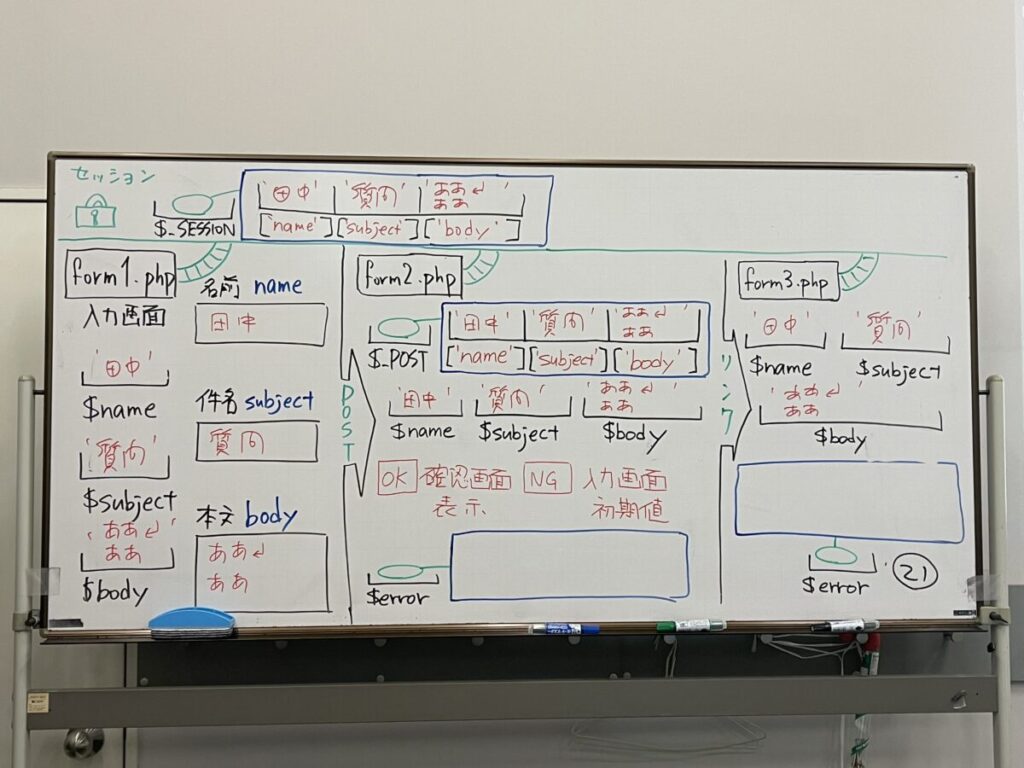 セッション
$_SESSION
'田中' '質問' 'ああ↲
ああ '
['name']['subject']['body']
form1.php
入力画面
'田中'
$name
'質問'
$subject
'ああ↲
ああ '
$body
名前 name
田中
件名 subject
質問
本文 body
ああ↲
ああ
POST
form2.php
$_POST
'田中' '質問' 'ああ↲
ああ '
['name']['subject']['body']
'田中' '質問' 'ああ↲
ああ '
$name $subject $body
OK 確認画面
表示
NG 入力画面
初期値
$error
リンク
form3.php
'田中' '質問'
$name $subject
'ああ↲
ああ '
$body
$error
21